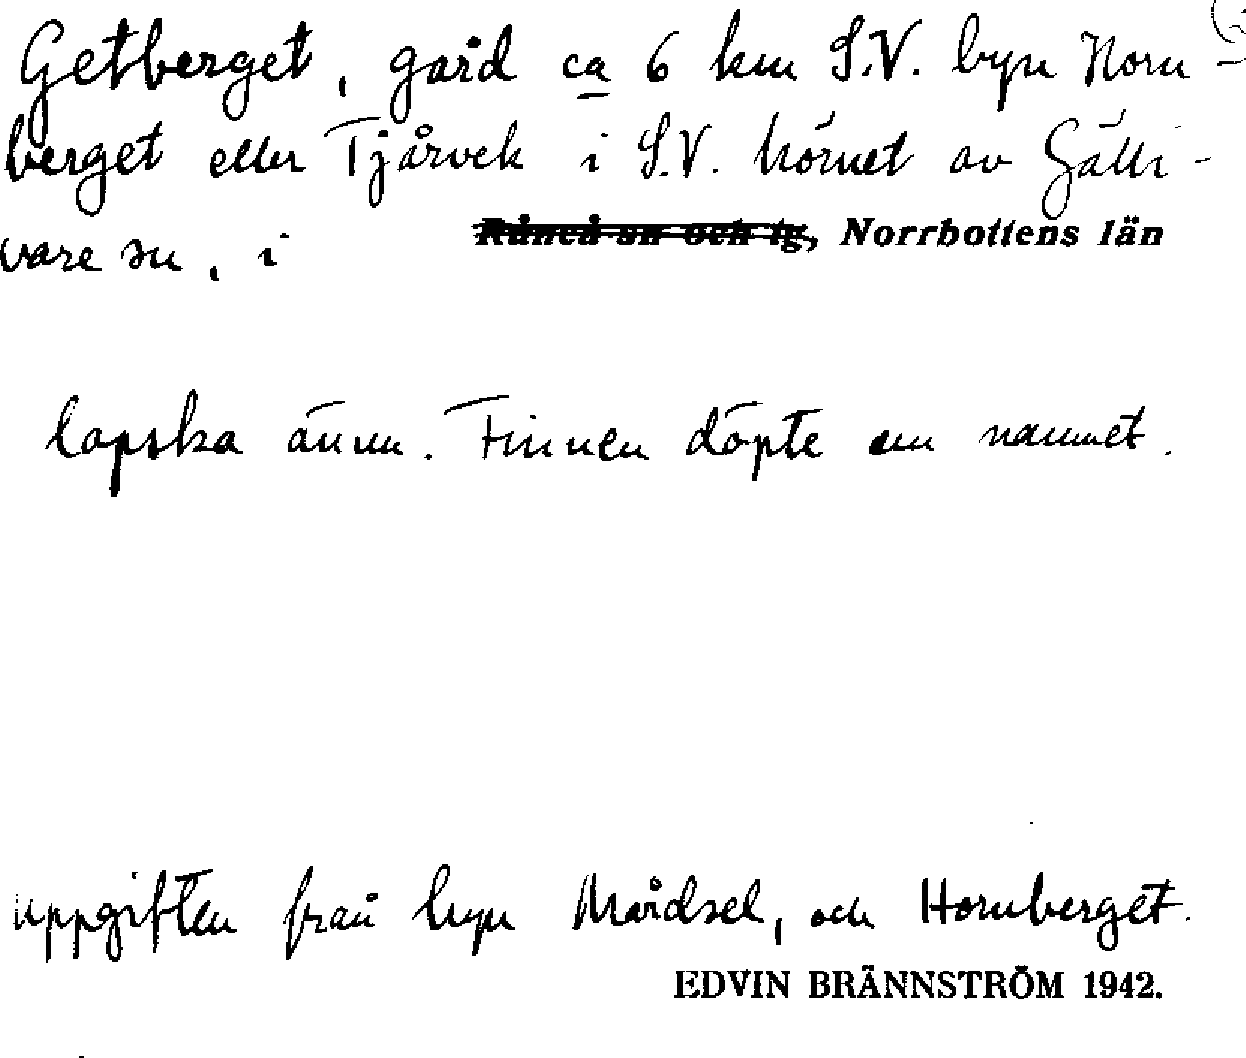 Getberget, gård ca 6 km S.V. byn Horn-
berget eller Tjårvek i S.V. hörnet av Gälli-
vare sn, i Råneå sn och tg, Norrbottens län
lapska ännu. Finnen döpte om namnet.
uppgiften från byn Mårdsel, och Hornberget.
EDVIN BRÄNNSTRÖM 1942.